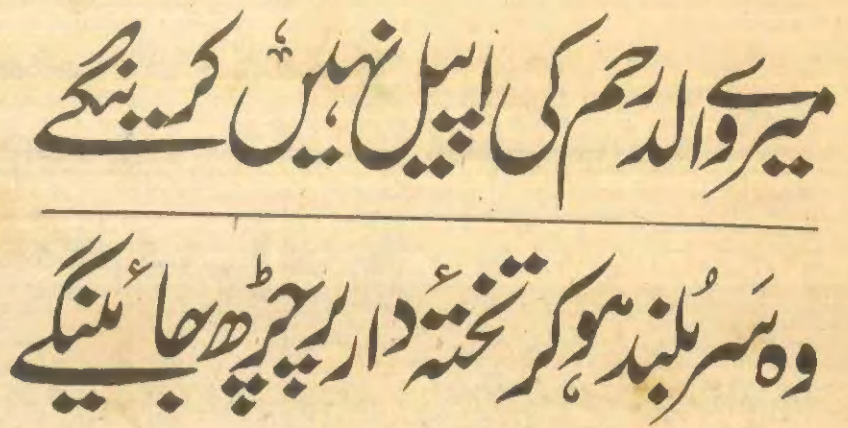 میرے والد رحم کی اپیل نہیں کرینگے
وہ سَر بُلند ہوکر تختۂ دار پر چڑھ جائینگے